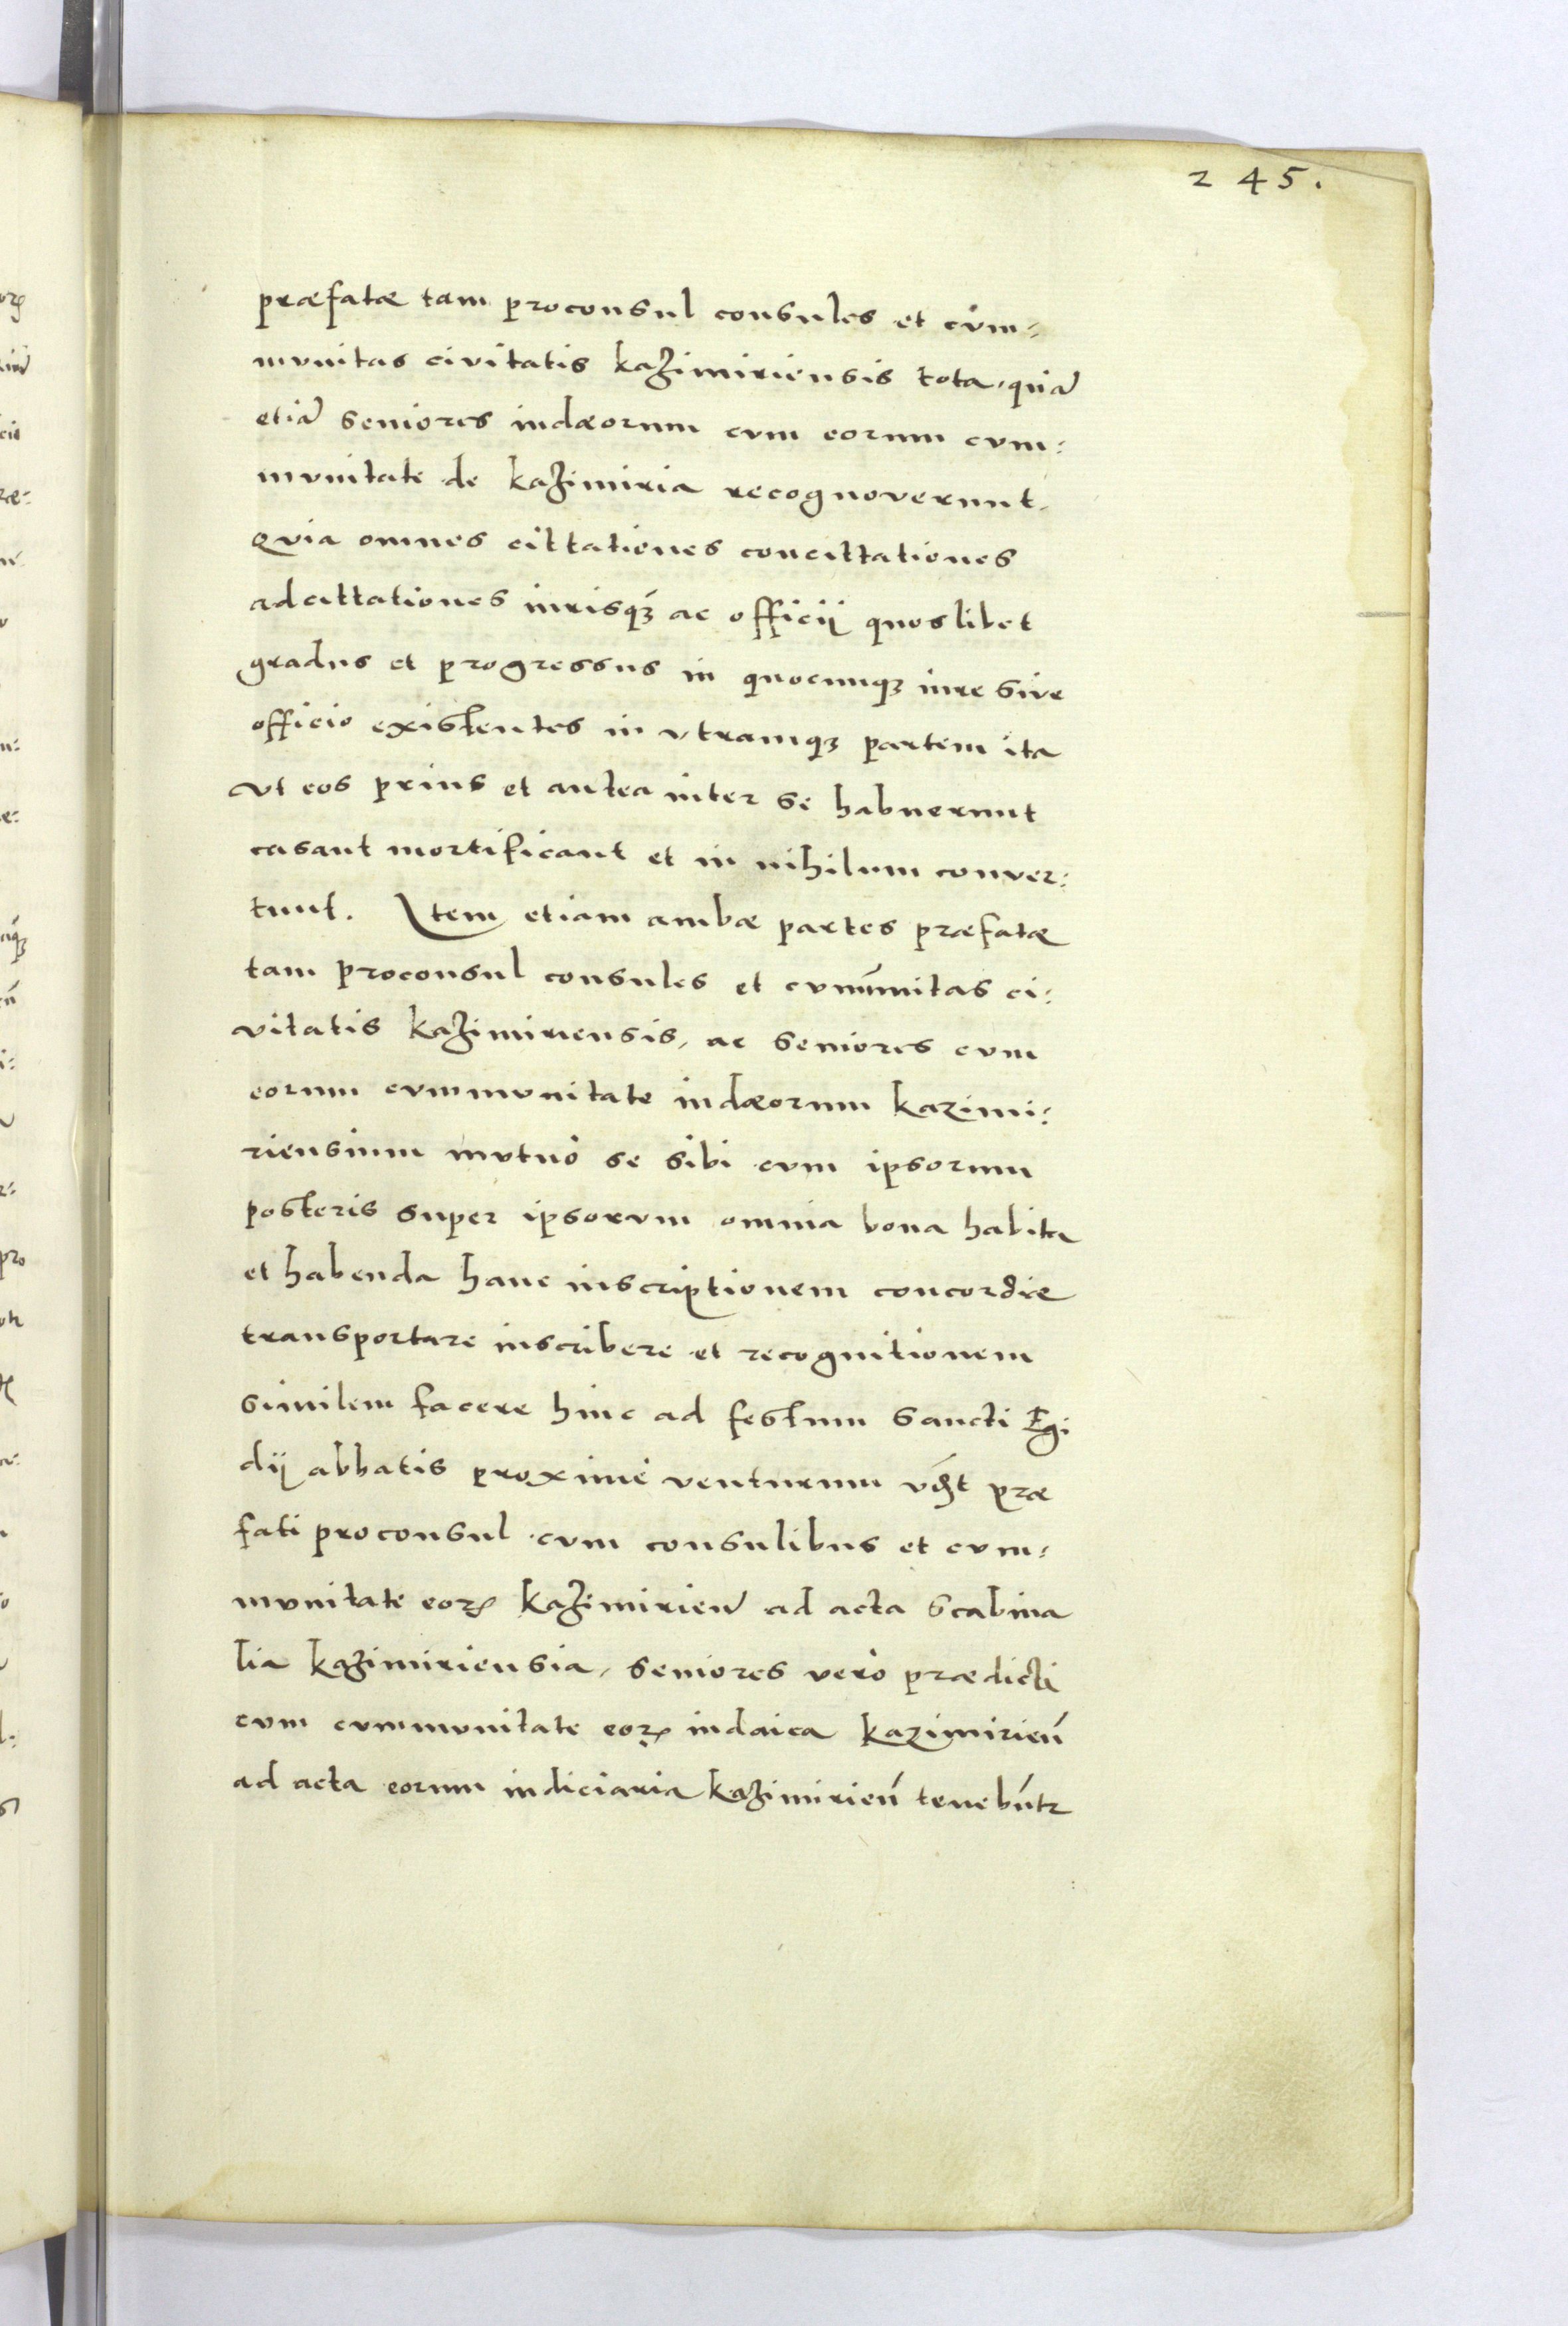 245.
præfatæ tam proconsul consules et cum:
munitas civitatis kazimiriensis tota, quā
etiā seniores iudæorum cum eorum cum:
munitate de kazimiria recognoverunt,
Quia omnes cittationes concittationes
adcittationes iurisqȝ ac officij quoslibet
gradus et progressus in quocunqȝ iure sive
officio existentes in utramqȝ partem ita
ut eos prius et antea inter se habuerunt
casant mortificant et in nihilum conver:
tunt. Item etiam ambæ partes præfatæ
tam proconsul consules et cum̄unitas ci:
vitatis kazimiriensis, ac seniores cum
eorum cummunitate iudæorum kazimi:
riensium mutuò se sibi cum ipsorum
posteris super ipsorum omnia bona habita
et habenda hanc inscriptionem concordiæ
transportare inscribere et recognitionem
similem facere hinc ad festum Sancti Egi
dij abbatis proximè venturum vꝫt præ
fati proconsul cum consulibus et cum:
munitate eorꝝ kazimirien̄ ad acta scabina
lia kazimiriensia, seniores verò prædicti
cum cummunitate eorꝝ iudaica kazimirien̄
ad acta eorum iudiciaria kazimirien̄ tenebūtr